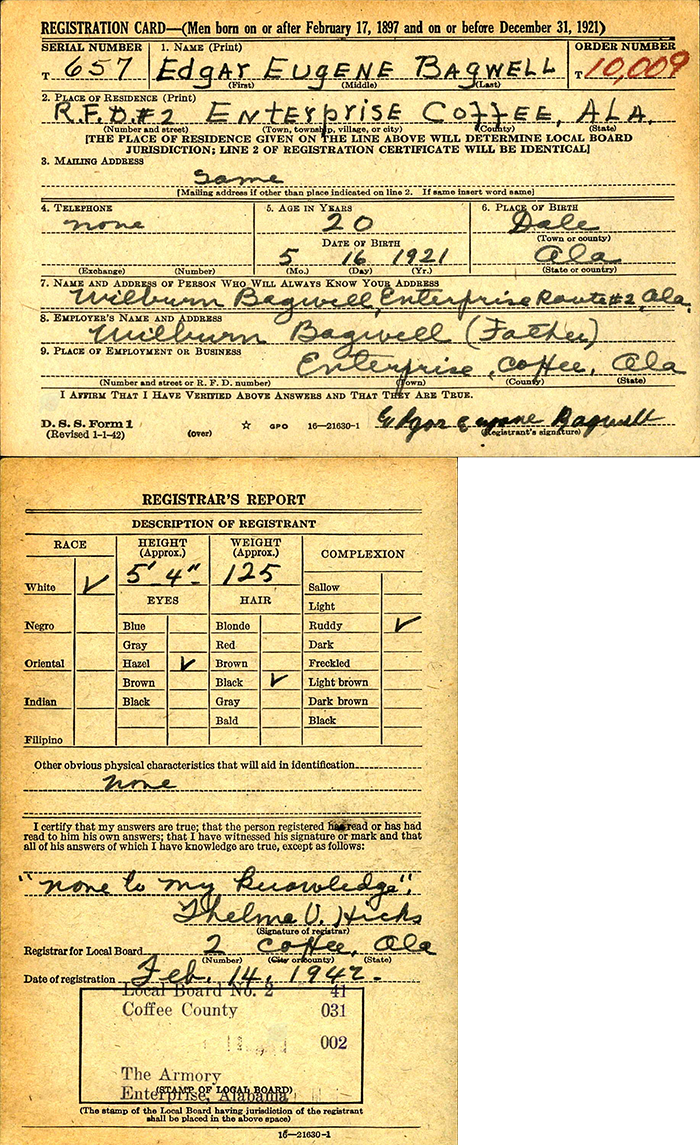 REGISTRATION CARD—(Men born on or after February 17, 1897 and on or before December 31, 1921)
SERIAL NUMBER 1. NAME (Print) ORDER NUMBER
T 657 Edgar Eugene Bagwell T 10,009
(First) (Middle) (Last)
2. PLACE OF RESIDENCE (Print)
R.F.D.#2 Enterprise Coffee, ALA.
(Number and street) (Town, township, village, or city) (County) (State)
[THE PLACE OF RESIDENCE GIVEN ON THE LINE ABOVE WILL DETERMINE LOCAL BOARD
JURISDICTION; LINE 2 OF REGISTRATION CERTIFICATE WILL BE IDENTICAL]
3. MAILING ADDRESS
Same
[Mailing address if other than place indicated on line 2. If same insert word same]
4. TELEPHONE 5. AGE IN YEARS 6. PLACE OF BIRTH
none 20 Dale
(Town or county)
DATE OF BIRTH
5 16 1921 Ala
(Exchange) (Number) (Mo.) (Day) (Yr.) (State or country)
7. NAME AND ADDRESS OF PERSON WHO WILL ALWAYS KNOW YOUR ADDRESS
Wilburn Bagwell, Enterprise Route #2, Ala.
8. EMPLOYER'S NAME AND ADDRESS
Wilburn Bagwell (Father)
9. PLACE OF EMPLOYMENT OR BUSINESS
Enterprise, Coffee, Ala
(Number and street or R. F. D. number) (Town) (County) (State)
I AFFIRM THAT I HAVE VERIFIED ABOVE ANSWERS AND THAT THEY ARE TRUE.
D. S. S. Form 1
(Revised 1-1-42) (over) ☆ GPO 16—21630-1 Edgar Eugene Bagwell
(Registrant's signature)
REGISTRAR'S REPORT
DESCRIPTION OF REGISTRANT
RACE HEIGHT (Approx.) WEIGHT (Approx.) COMPLEXION
White ✓ 5' 4" 125 Sallow
EYES HAIR Light
Negro Blue Blonde Ruddy ✓
Gray Red Dark
Oriental Hazel ✓ Brown Freckled
Brown Black ✓ Light brown
Indian Black Gray Dark brown
Bald Black
Filipino
Other obvious physical characteristics that will aid in identification
none
I certify that my answers are true; that the person registered has read or has had
read to him his own answers; that I have witnessed his signature or mark and that
all of his answers of which I have knowledge are true, except as follows:
"none to my knowledge".
Thelma V. Hicks
(Signature of registrar)
Registrar for Local Board 2 Coffee, Ala
(Number) (City or county) (State)
Date of registration Feb. 14, 1942-
Local Board No. 2 41
Coffee County 031
002
The Armory
Enterprise, Alabama
(STAMP OF LOCAL BOARD)
(The stamp of the Local Board having jurisdiction of the registrant
shall be placed in the above space)
16—21630-1